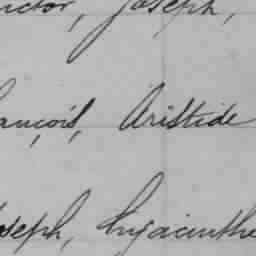 ictor, Joseph,
ançois, Aristide
oseph, Hyacinthe